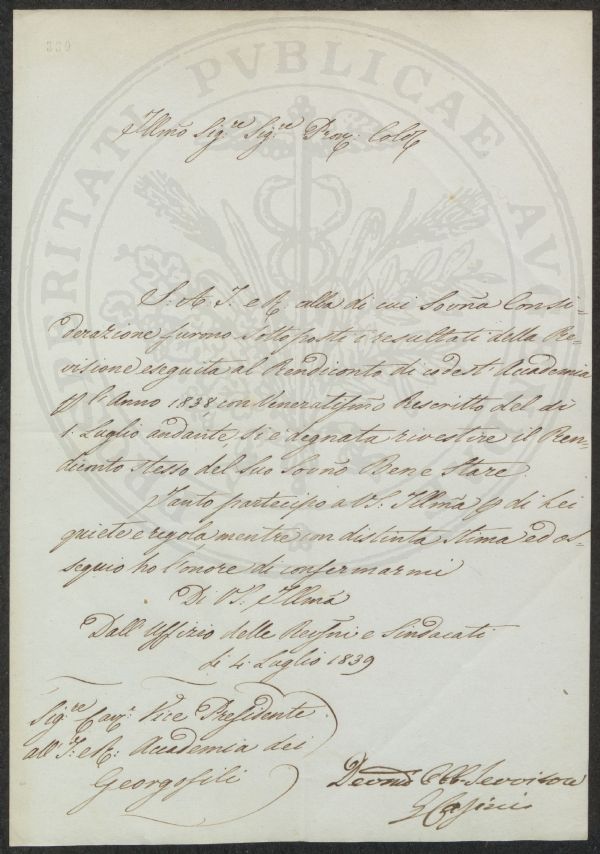 339
Illmo Sig.re Sig.re Pron. Colo
S. A. I. e R. alla di cui Sovrña Consi=
derazione furono sottoposti i resultati della Re=
visione eseguita al Rendiconto di codest' Accademia
p l'Anno 1838 con Veneratissmo Rescritto del dì
1. Luglio andante si è degnata rivestire il Ren=
diconto stesso del suo Sovño Bene Stare.
Tanto partecipo a VS. Illma p di Lei
quiete e regola mentre con distinta stima ed os=
sequio ho l'onore di confermarmi
Di VS. Illma
Dall'Uffizio delle Revñi e Sindacati
li 4. Luglio 1839
Sig.re Cav. Vice Presidente
all'I. e R. Accademia dei
Georgofili
Devmo Obb. Servitore
PROSPERITATI PVBLICAE AVG